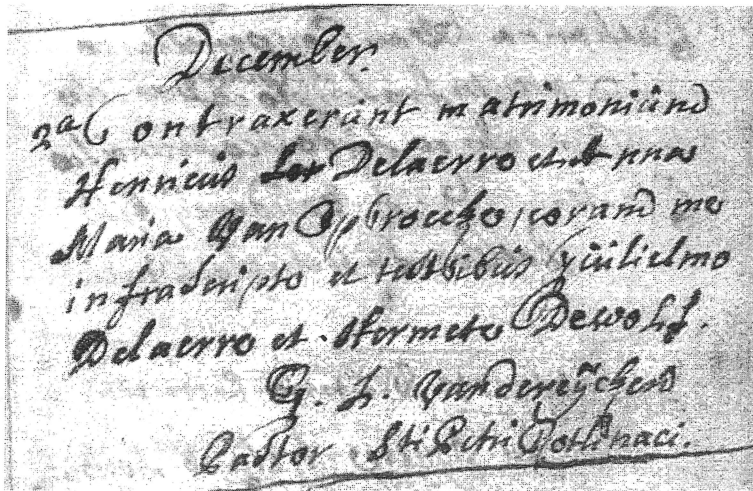 December.
2a Contraxerunt matrimonium
Henricus Delaerro et Anna
Maria Van Opbroecke, coram me
infrascripto et testibus Guilielmo
Delaerro et Hermete Dewolf.
G. L. Vandereÿcken
Pastor Sti Petri